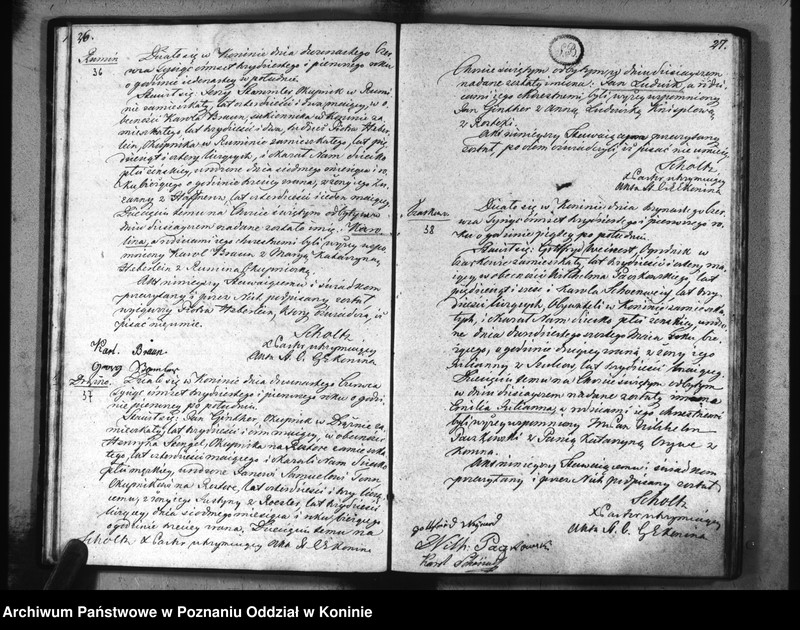 26.
Rumin
36
Działo się w Koninie dnia dwunastego Czer-
wca tysiąc ośmset trzydziestego i pierwszego roku
o godzinie iedenastej w południe.
Stawił się Jerzy Okupnik w Rumi-
nie zamieszkały, lat czterdzieści i dwa maiący, w o-
becności Karola Braun, sukiennika w Koninie za-
mieszkałego, lat trzydzieści i dwa, tudzież Piotra Heker-
lein, Okupnika w Ruminie zamieszkałego, lat pię-
dziesiąt i cztery liczących, i okazał Nam dziecko
płci żeńskiej, urodzone dnia siódmego miesiąca i ro-
ku bieżącego o godzinie trzeciej zrana, z żony iego Zu-
zanny z lat czterdzieści i ieden maiącej.
Dziecięciu temu na Chrzcie świętym odbytym w
dniu dzisiayszem nadane zostało imię Karo-
lina, a rodzicami iego chrzestnemi byli wyżey wspo-
mniony Karol Braun z Maryą Katarzyną
Hekerlein z Rumina Okupniczką.
Akt niniejszy Stawaiącemu i świadkom
przeczytany i przez Nich podpisany został
wyiąwszy Piotra Hekerlein, który oświadczył, iż
pisać nieumie.
Scholtz
x Pastor utrzymuiący
Akta St. C. G. E. Konina
Karl. Braun
Georg
Drążno.
37
Działo się w Koninie dnia dwunastego Czerwca
tysiąc ośmset trzydziestego i pierwszego roku o godzi-
nie pierwszey po południu.
Stawił się Jan Ginther, Okupnik w Drążnie za-
mieszkały, lat trzydzieści i ośm maiący, w obecności
Henryka Stengel, Okupnika na zamieszka-
łego, lat czterdzieści maiącego i okazali Nam dziecko
płci męzkiey, urodzone Janowi Samuelowi
Okupnikowi na lat czterdzieści i trzy liczą-
cemu, z żony iego Justyny z lat trzydzieści
liczącey, dnia siódmego miesiąca i roku bieżącego
o godzinie trzeciey zrana, Dziecięciu temu na
Scholtz x Pastor utrzymuiący Akta St. C. G. E. Konina
27.
Chrzcie świętym odbytym w dniu dzisiayszem
nadane zostały imiona: Jan Ludwik, a rodzi-
cami iego chrzestnemi byli, wyżey wspomniony
Jan Ginther z Anną Ludwiką
z
Akt niniejszy Stawaiącym przeczytany
został, poczem oświadczyli, iż pisać nie umieią.
Scholtz
x Pastor utrzymuiący
Akta St. C. G. E. Konina
38
Działo się w Koninie dnia trzynastego Czer-
wca tysiąc ośmset trzydziestego i pierwszego ro-
ku o godzinie piątey po południu.
Stawił się Ogrodnik w
zamieszkały, lat trzydzieści i cztery ma-
iący w obecności Wilhelma Paczkowski, lat
pięćdziesiąt i sześć i Karola lat trzy-
dzieści liczących, Obywateli w Koninie zamieszka-
łych, i okazał Nam dziecko płci żeńskiey, urodzo-
ne dnia dwudziestego szóstego Maia roku bie-
żącego, o godzinie drugiey zrana z żony iego
Julianny z lat trzydzieści maiącey.
Dziecięciu temu na Chrzcie świętym odbytym
w dniu dzisiayszem nadane zostały imiona
Emilia Julianna, a rodzicami iego chrzestnemi
byli wyżey wspomniony Wilhelm
Paczkowski z Panią Katarzyną z
Konina.
Akt niniejszy Stawaiącemu i świadkom
przeczytany i przez Nich podpisany został.
Scholtz
x Pastor utrzymuiący
Akta St. C. G. E. Konina
Gottfried
Wilh.
Karl
Archiwum Państwowe w Poznaniu Oddział w Koninie